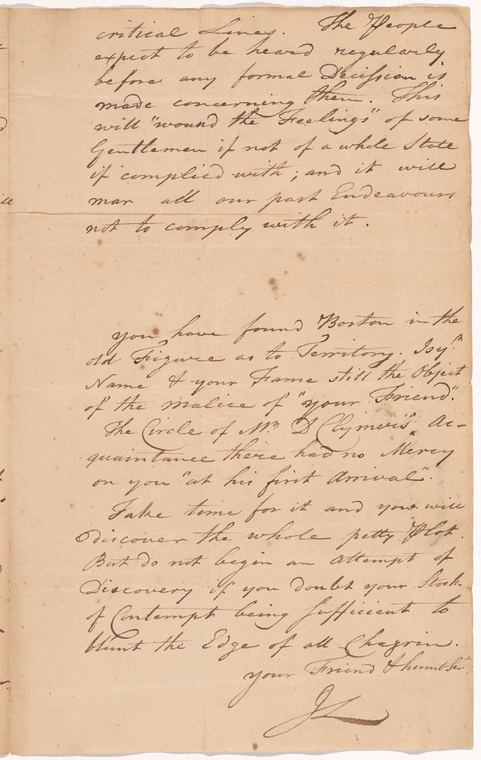 critical Lines. The People
expect to be heard regularly
before any formal Decission is
made concerning them. This
will "wound the Feelings" of some
Gentlemen if not of a whole State
if complied with; and it will
mar all our past Endeavours
not to comply with it.
You have found Boston in the
old Figure as to Territory.
Name & your Fame still the Object
of the malice of "your Friend".
The Circle of Mr. D Clymer's Ac-
quaintance there had no Mercy
on you "at his first Arrival".
Take time for it and you will
Discover the whole petty Plot.
But do not begin an Attempt of
Discovery if you doubt your Stock
of Contempt being sufficient to
blunt the Edge of all Chagrin.
your Friend & humb Serv
JL